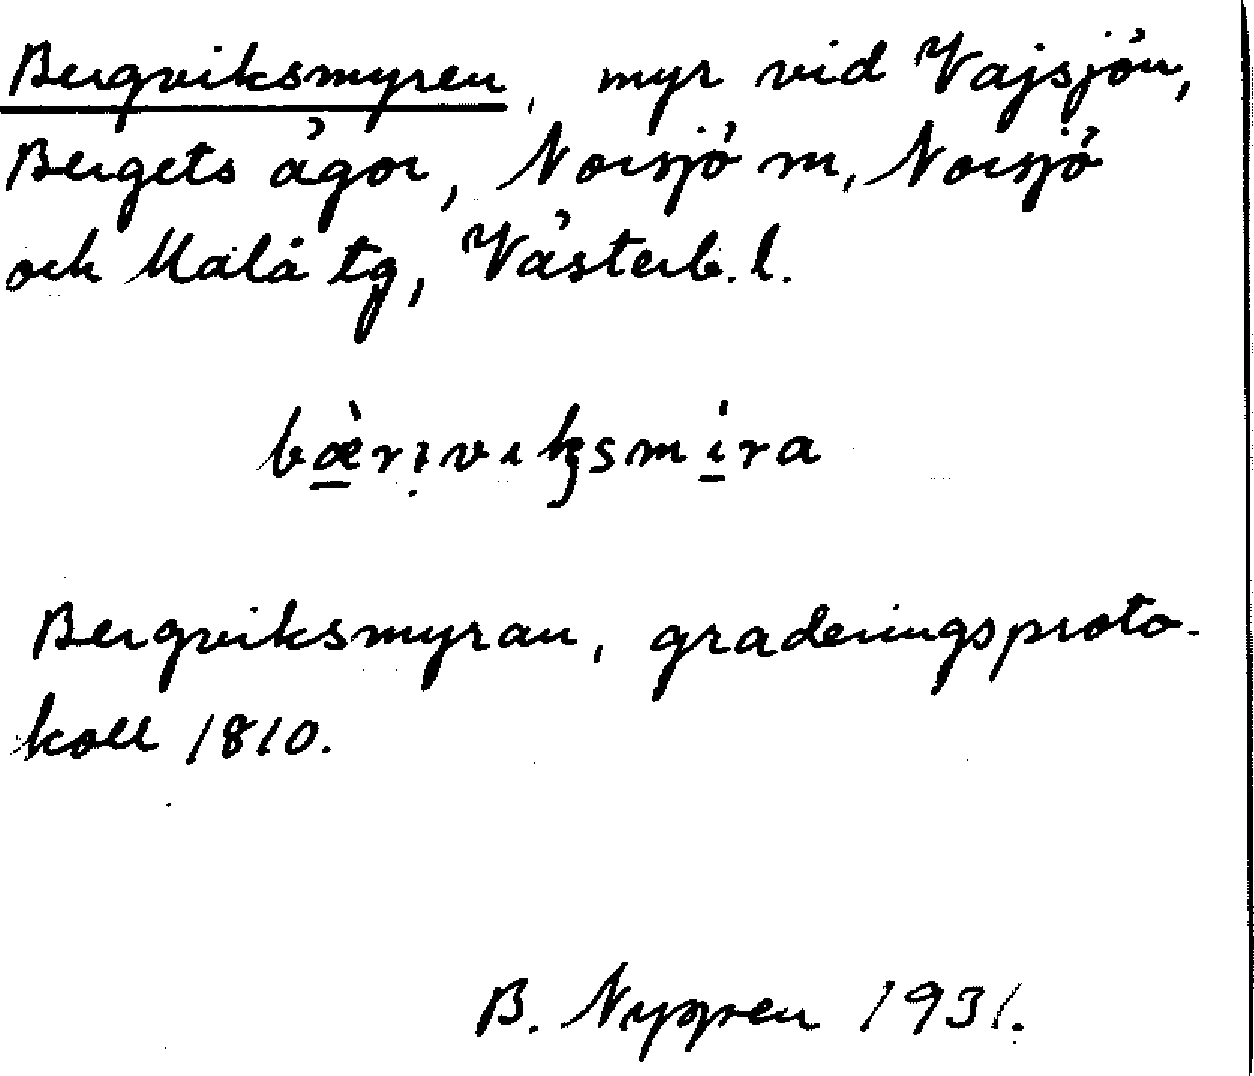 Bergviksmyren, myr vid Vajsjön,
Bergets ägor, Norsjö sn, Norsjö
och Malå tg, Västerb. l.
bæ̀ri̥viksmíra
Bergviksmyran, graderingsproto-
koll 1810.
B. Nygren 1931.